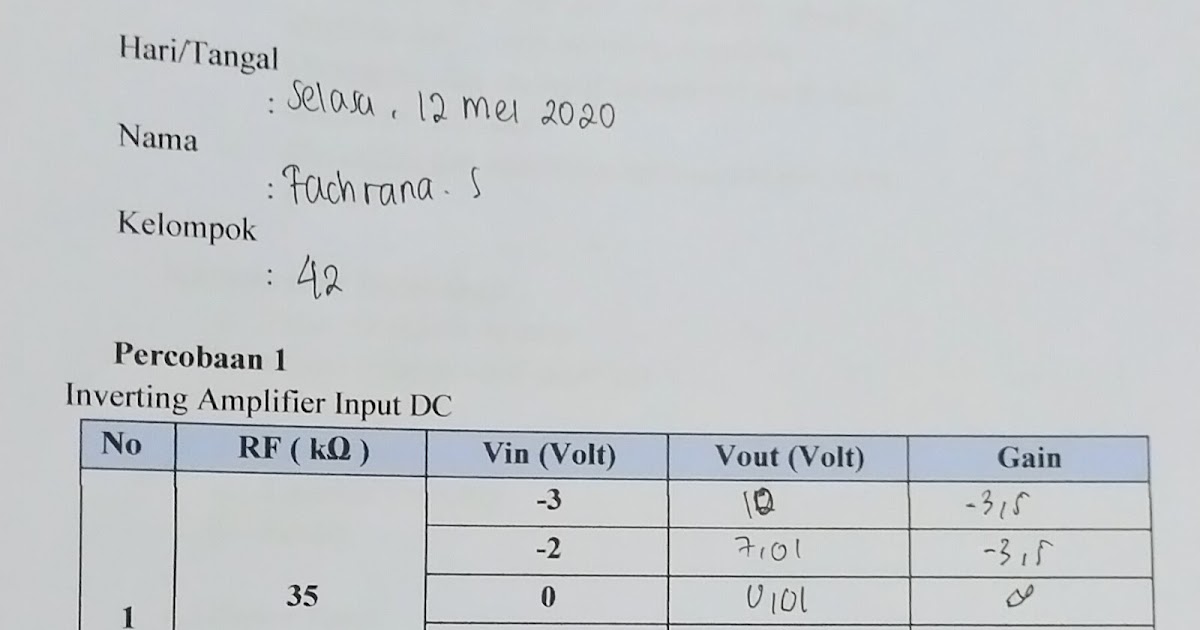 Hari/Tangal
: Selasa, 12 mei 2020
Nama
: Fachrana. S
Kelompok
: 42
Percobaan 1
Inverting Amplifier Input DC
No RF ( kΩ ) Vin (Volt) Vout (Volt) Gain
-3 10 -3,5
-2 7,01 -3,5
35 0 0,01 ∞
1